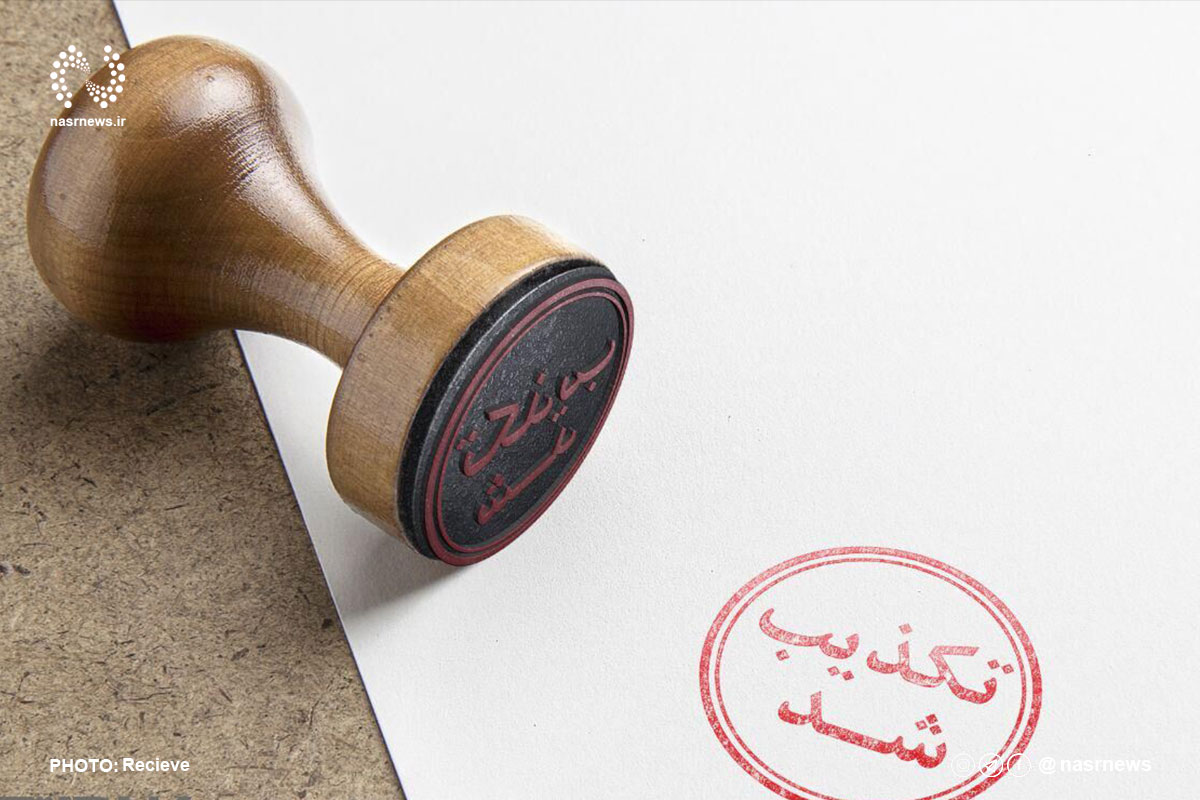 nasrnews.ir
تکذیب
شد
PHOTO: Recieve
@nasrnews